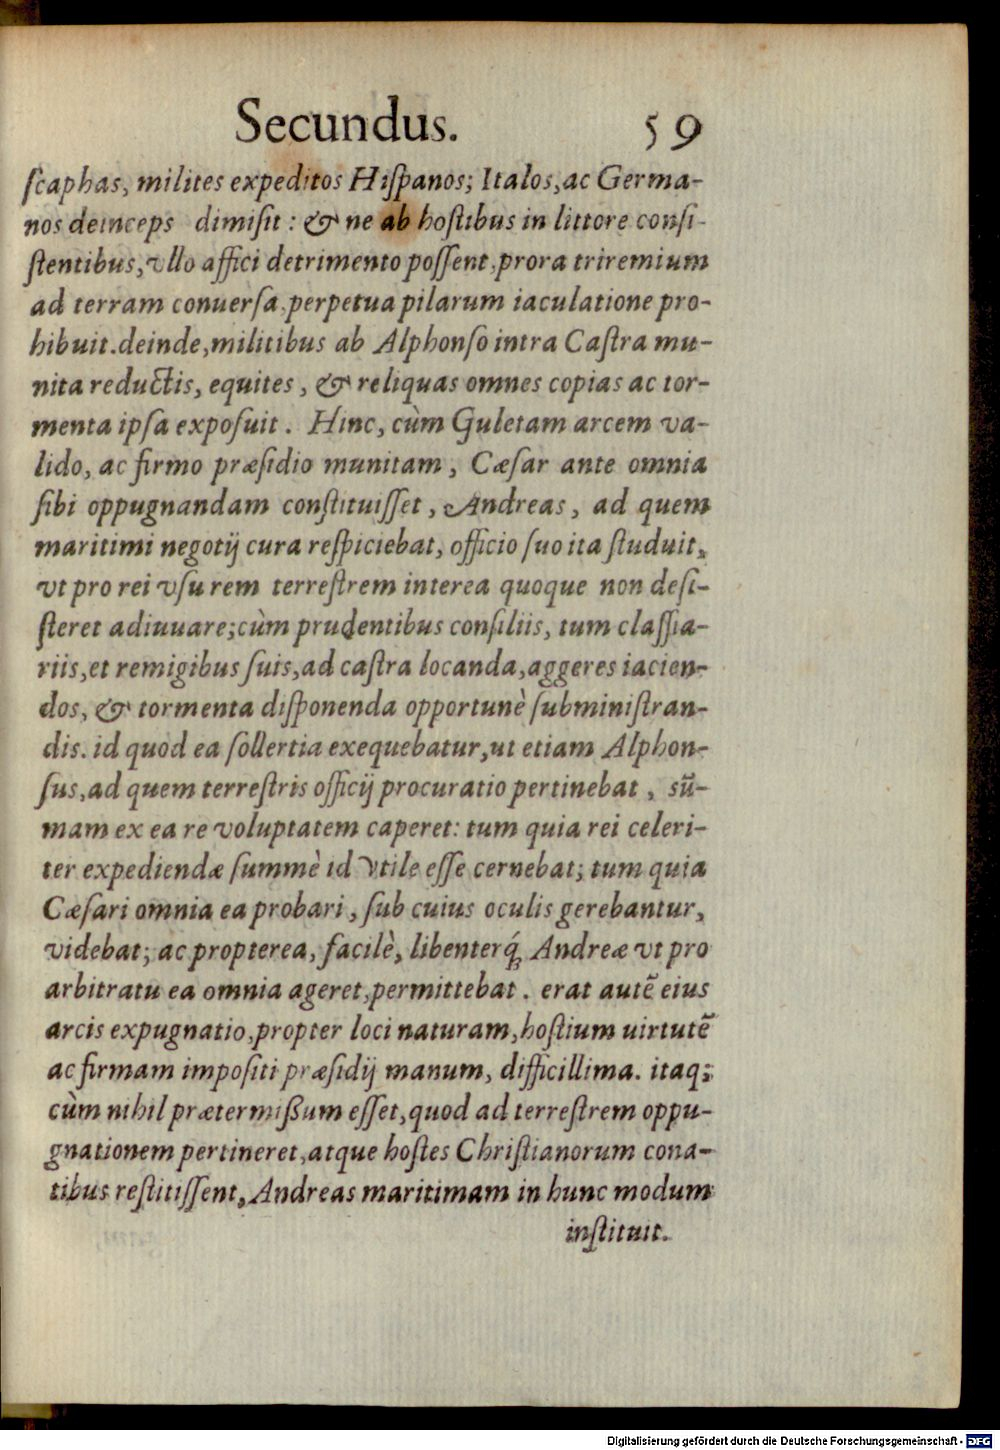 Secundus. 59
ſcaphas, milites expeditos Hiſpanos; Italos, ac Germa-
nos deinceps dimiſit: & ne ab hoſtibus in littore conſi-
ſtentibus, vllo affici detrimento poſſent, prora triremium
ad terram conuerſa, perpetua pilarum iaculatione pro-
hibuit. deinde, militibus ab Alphonſo intra Caſtra mu-
nita reductis, equites, & reliquas omnes copias ac tor-
menta ipſa expoſuit. Hinc, cùm Guletam arcem va-
lido, ac firmo præſidio munitam, Cæſar ante omnia
ſibi oppugnandam conſtituiſſet, Andreas, ad quem
maritimi negotij cura reſpiciebat, officio ſuo ita ſtuduit,
vt pro rei vſu rem terreſtrem interea quoque non deſi-
ſteret adiuuare; cùm prudentibus conſiliis, tum claſſia-
riis, et remigibus ſuis, ad caſtra locanda, aggeres iacien-
dos, & tormenta diſponenda opportunè ſubminiſtran-
dis. id quod ea ſollertia exequebatur, ut etiam Alphon-
ſus, ad quem terreſtris officij procuratio pertinebat, sũ-
mam ex ea re voluptatem caperet: tum quia rei celeri-
ter expediendæ ſummè id Vtile eſſe cernebat; tum quia
Cæſari omnia ea probari, ſub cuius oculis gerebantur,
videbat; ac propterea, facilè, libenterq́ʒ Andreæ vt pro
arbitratu ea omnia ageret, permittebat. erat autẽ eius
arcis expugnatio, propter loci naturam, hoſtium uirtutẽ
ac firmam impoſiti præſidij manum, difficillima. itaq;
cùm nihil prætermißum eſſet, quod ad terreſtrem oppu-
gnationem pertineret, atque hoſtes Chriſtianorum cona-
tibus reſtitiſſent, Andreas maritimam in hunc modum
inſtituit.
Digitalisierung gefördert durch die Deutsche Forschungsgemeinschaft - DFG